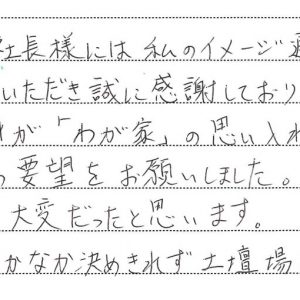 社長様には私のイメージ通
いただき誠に感謝しており
が「わが家」の思い入れ
要望をお願いしました。
大変だったと思います。
かなか決めきれず土壇場